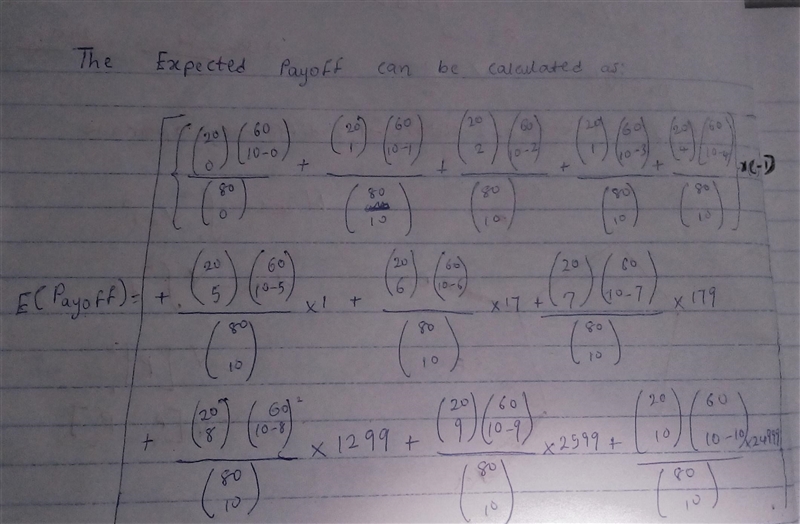 The Expected Payoff can be calculated as:
[{ (20 0)(60 10-0) / (80 0) + (20 1)(60 10-1) / (80 10) + (20 2)(60 10-2) / (80 10) + (20 1)(60 10-3) / (80 10) + (20 4)(60 10-4) / (80 10) } x(-1)
E(Payoff) = + (20 5)(60 10-5) / (80 10) x1 + (20 6)(60 10-6) / (80 10) x17 + (20 7)(60 10-7) / (80 10) x179
+ (20 8)(60 10-8) / (80 10) x1299 + (20 9)(60 10-9) / (80 10) x2599 + (20 10)(60 10-10) / (80 10) x24999 ]